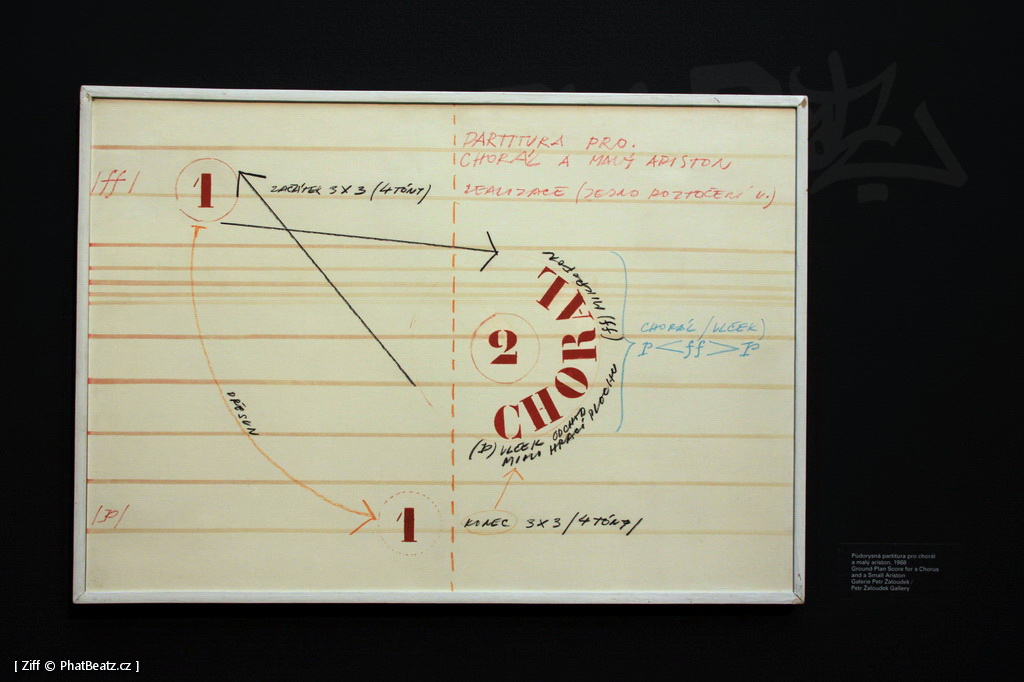 PARTITURA PRO.
CHORÁL A MALÝ ARISTON
REALIZACE (JEDNO ROZTOČENÍ V.)
|ff|
1
ZAČÁTEK 3X3 (4 TÓNY)
(ff) MIKROFON
CHORÁL
2
CHORÁL (VLČEK)
P < ff > P
PŘESUN
(P) VLČEK ODCHÁD
MIMO HRACÍ PLOCHU
|P|
1
KONEC 3X3 (4 TÓNY)
Půdorysná partitura pro chorál
a malý ariston, 1968
Ground Plan Score for a Chorus
and a Small Ariston
Galerie Petr Žaloudek /
Petr Žaloudek Gallery
[ Ziff © PhatBeatz.cz ]